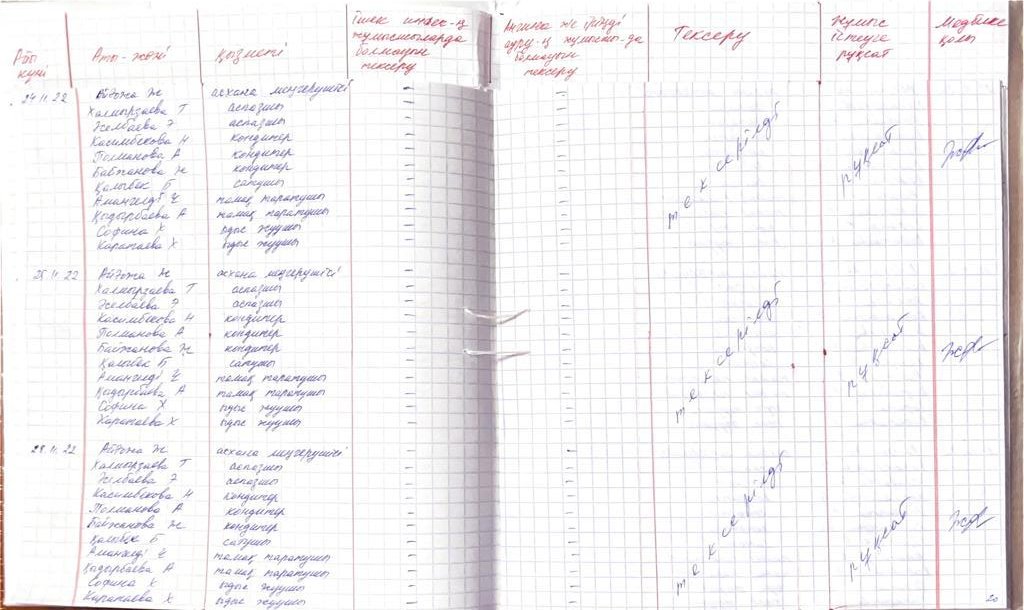 Айы күні	Аты-жөні	қызметі	Ішек инфек-ң жұмысшыларда болмауын тексеру	Ангина же іріңді ауру-ң жұмысшы-да болмауын тексеру	Тексеру	жұмыс істеуге рұқсат	Медбике қолы
24 11 22	Айдожа Ж	асхана меңгерушісі	-	-	тексерілді	рұқсат
Халмырзаева Т	аспазшы	-	-
Желбаева Э	аспазшы	-	-
Касимбекова Н	кондитер	-	-
Полманова А	кондитер	-	-
Байжанова Ж	кондитер	-	-
Қалыбек Б	сатушы	-	-
Амангелді Ұ	тамақ таратушы	-	-
Қадырбаева А	тамақ таратушы	-	-
Софина Х	ыдыс жуушы	-	-
Каратаева Х	ыдыс жуушы	-	-
25 11 22	Айдожа Ж	асхана меңгерушісі	-	-	тексерілді	рұқсат
Халмырзаева Т	аспазшы	-	-
Желбаева Э	аспазшы	-	-
Касимбекова Н	кондитер	-	-
Полманова А	кондитер	-	-
Байжанова Ж	кондитер	-	-
Қалыбек Б	сатушы	-	-
Амангелді Ұ	тамақ таратушы	-	-
Қадырбаева А	тамақ таратушы	-	-
Софина Х	ыдыс жуушы	-	-
Каратаева Х	ыдыс жуушы	-	-
28 11 22	Айдожа Ж	асхана меңгерушісі	-	-	тексерілді	рұқсат
Халмырзаева Т	аспазшы	-	-
Желбаева Э	аспазшы	-	-
Касимбекова Н	кондитер	-	-
Полманова А	кондитер	-	-
Байжанова Ж	кондитер	-	-
Қалыбек Б	сатушы	-	-
Амангелді Ұ	тамақ таратушы	-	-
Қадырбаева А	тамақ таратушы	-	-
Софина Х	ыдыс жуушы	-	-
Каратаева Х	ыдыс жуушы	-	-
20